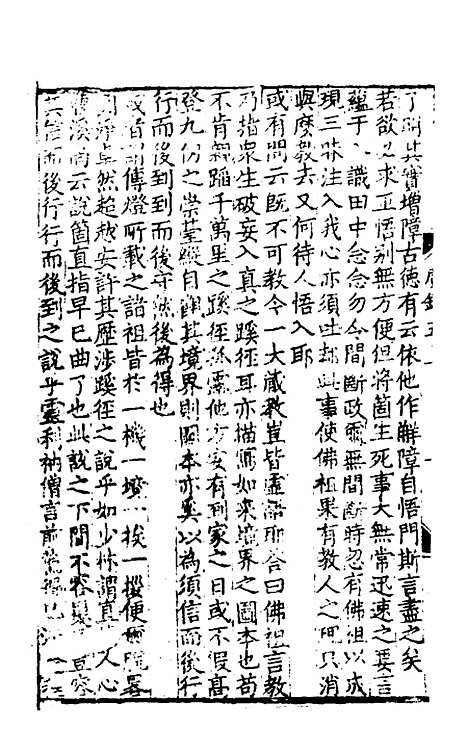 了則其實增障古德有云依他作解障自悟門斯言盡之矣
若欲必求正悟別無方便但將箇生死事大無常迅速之要言
蘊于八識田中念念勿令間斷政爾無間斷時忽有佛祖以成
現三昧注入我心亦須吐却此事使佛祖果有教人之理只消
與麼教去又何待人悟入耶
或有問云既不可教今一大藏教豈皆虛語耶答曰佛祖言教
乃指衆生破妄入真之蹊徑耳亦描寫如來境界之圖本也苟
不肯親踏千萬里之蹊徑於靈他方安有到家之日或不假高
登九仞之崇臺縱自闢其境界則圖本亦奚以為須信而後行
行而後到到而後守然後為得也
或者謂傳燈所載之諸祖皆於一機一境一挨一拶便爾
卓然超越安許其歷涉蹊徑之說乎如少林謂直人心
曹溪尚云說箇直指早已曲了也此說之下間不容豈容
其信而後行行而後到之說乎靈利衲僧言前薦得